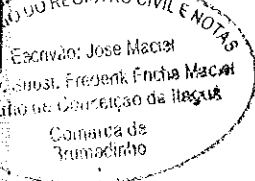 DO REGISTRO CIVIL E NOTAS
Escrivão: Jose Maciel
Subst. Frederik Maciel
de Conceição de Itaguá
Comarca de
Brumadinho